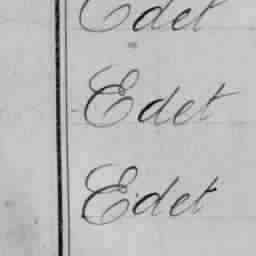 Edet
Edet
Edet